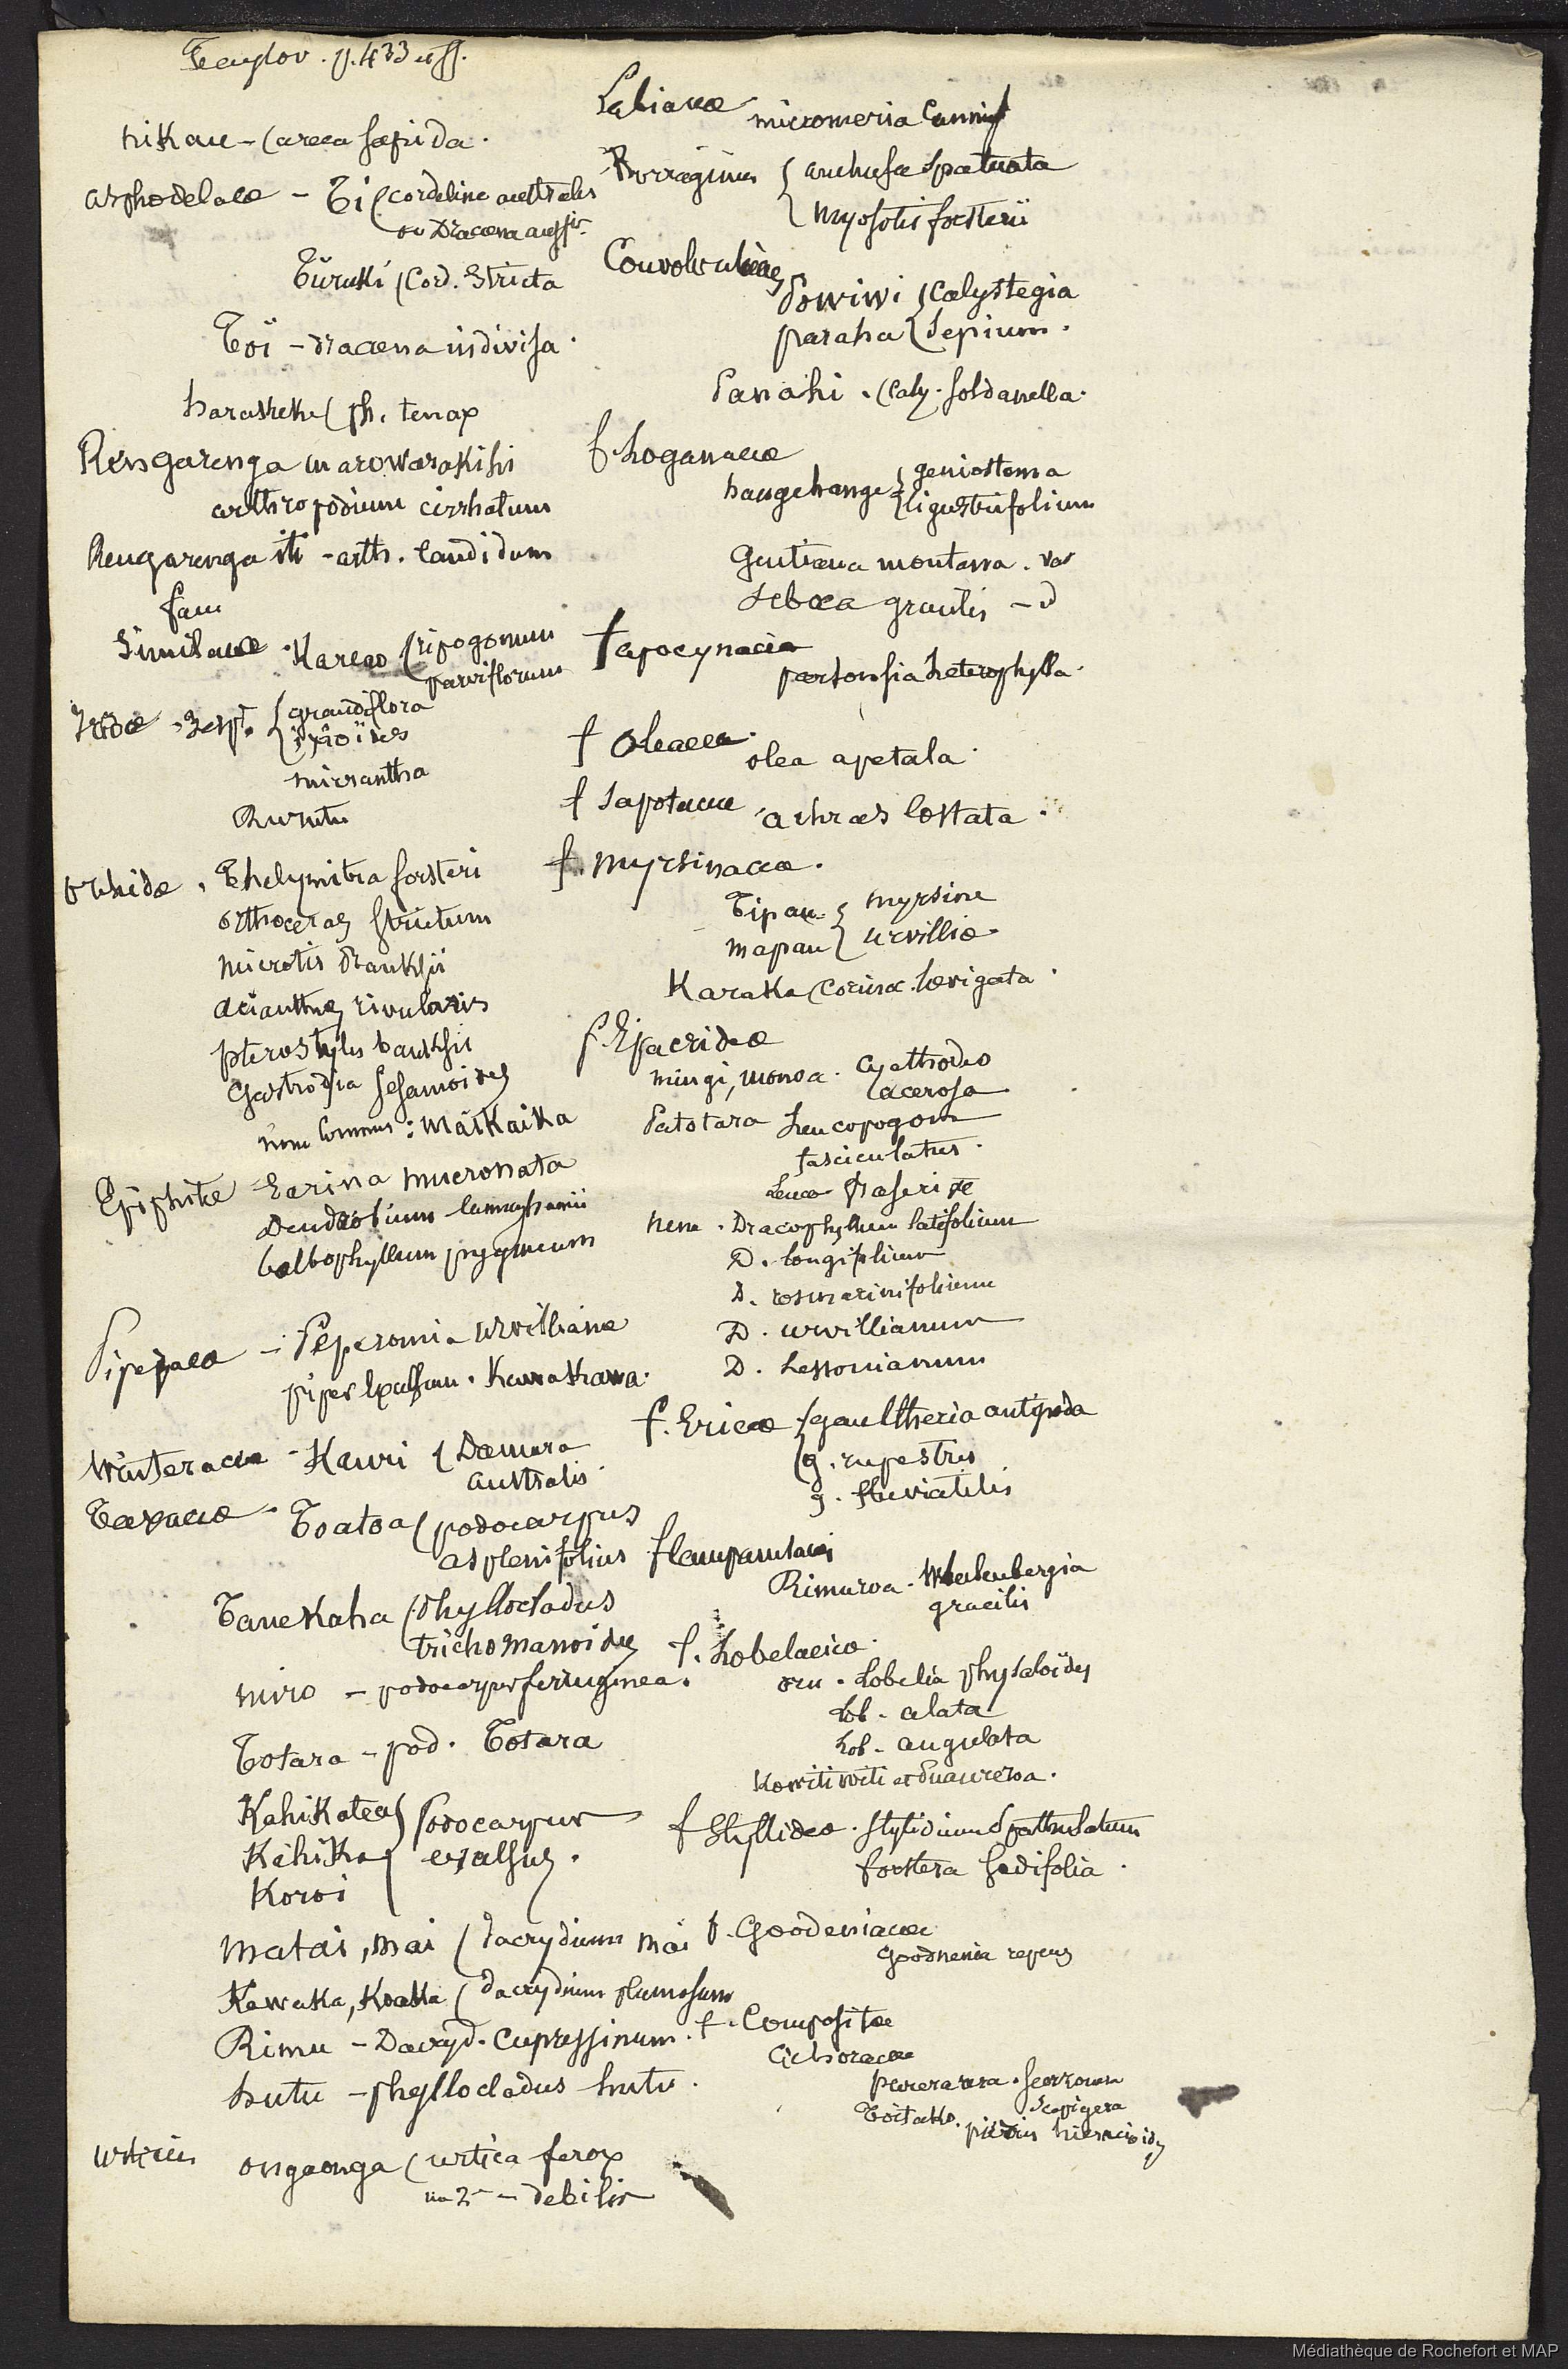 Taylor. p. 433 et ss.
nikau - (areca sapida.
asphodelace - Ti (cordeline australis
ou Dracaena
Türuki (Cord. Stricta
Toï - dracaena indivisa.
harakeke (ph. tenax
Rengarenga marowarakihi
arthropodium cirrhatum
Rengarenga iti - arth. Candidum
fam
Similaceæ Kareao (ripogonum
parviflorum
Irideæ {grandiflora
ixiöides
micrantha
Orchideæ. Thelymitra forsteri
orthoceras strictum
microtis Banksii
acianthus rivularis
pterostylis banksii
Gastrodia sesamoides
nom Commun: Maikaika
Epiphite Earina mucronata
Dendrobium Cunninghamii
bolbophyllum pygmeum
Piperaceæ - Peperomia urvilliana
piper Excelsum. Kawakawa.
Winteraceæ - Kauri (Damara
australis
Taxaceæ - Toatoa (podocarpus
asplenifolius
Tanekaha (phyllocladus
trichomanoides
miro - podocarpus ferruginea.
Totara - pod. Totara
Kahikatea } Podocarpus
Kahika } excelsus.
Koroi
Matai, mai (dacrydium mai
Kawaka, Koaka (dacrydium plumosum
Rimu - Dacryd. Cupressinum.
hutu - phyllocladus hutu.
ongaonga (urtica ferox
- debilis
Labiaceæ micromeria Cunning
Borragineæ { anchusa Spatulata
{ Myosotis forsterii
Convolvulaceæ
Powiwi { Calystegia
paraha { Sepium.
Panahi. (Caly. Soldanella.
f. Loganiaceæ
hangehange { geniostoma
{ ligustrifolium
Gentiana montana. var
Sebœa gracilis - d
f apocynaceæ
parsonsia heterophylla.
f Oleaceæ.
olea apetala.
f Sapotaceæ achras Costata.
f. Myrsinaceæ.
Tipau { Myrsine
mapau } urvilliæ
Karaka (Corinoc. lævigata.
f. Epacrideæ
mingi, monoa. Cyathodea
acerosa
Patotara Leucopogon
fasciculatus.
Leuco fraseri
Nene. Dracophyllum latifolium
D. longifolium
D. rosmarinifolium
D. urvillianum
D. Lessonianum
f. Ericeæ {gaultheria antipoda
{g. rupestris
g. fluviatilis
f Campanulaceæ
Rimuroa. Whalenbergia
gracilis
f. Lobelaeicæ.
oru. Lobelia physaloïdes
Lob. alata
Lob. angulata
f Styllideæ. Stylidium Spathulatum
forstera Sedifolia.
f. Goodeniaceæ
Goodnenia repens
f. Compositæ
Cichoraceæ
Scapigera
hieracioides